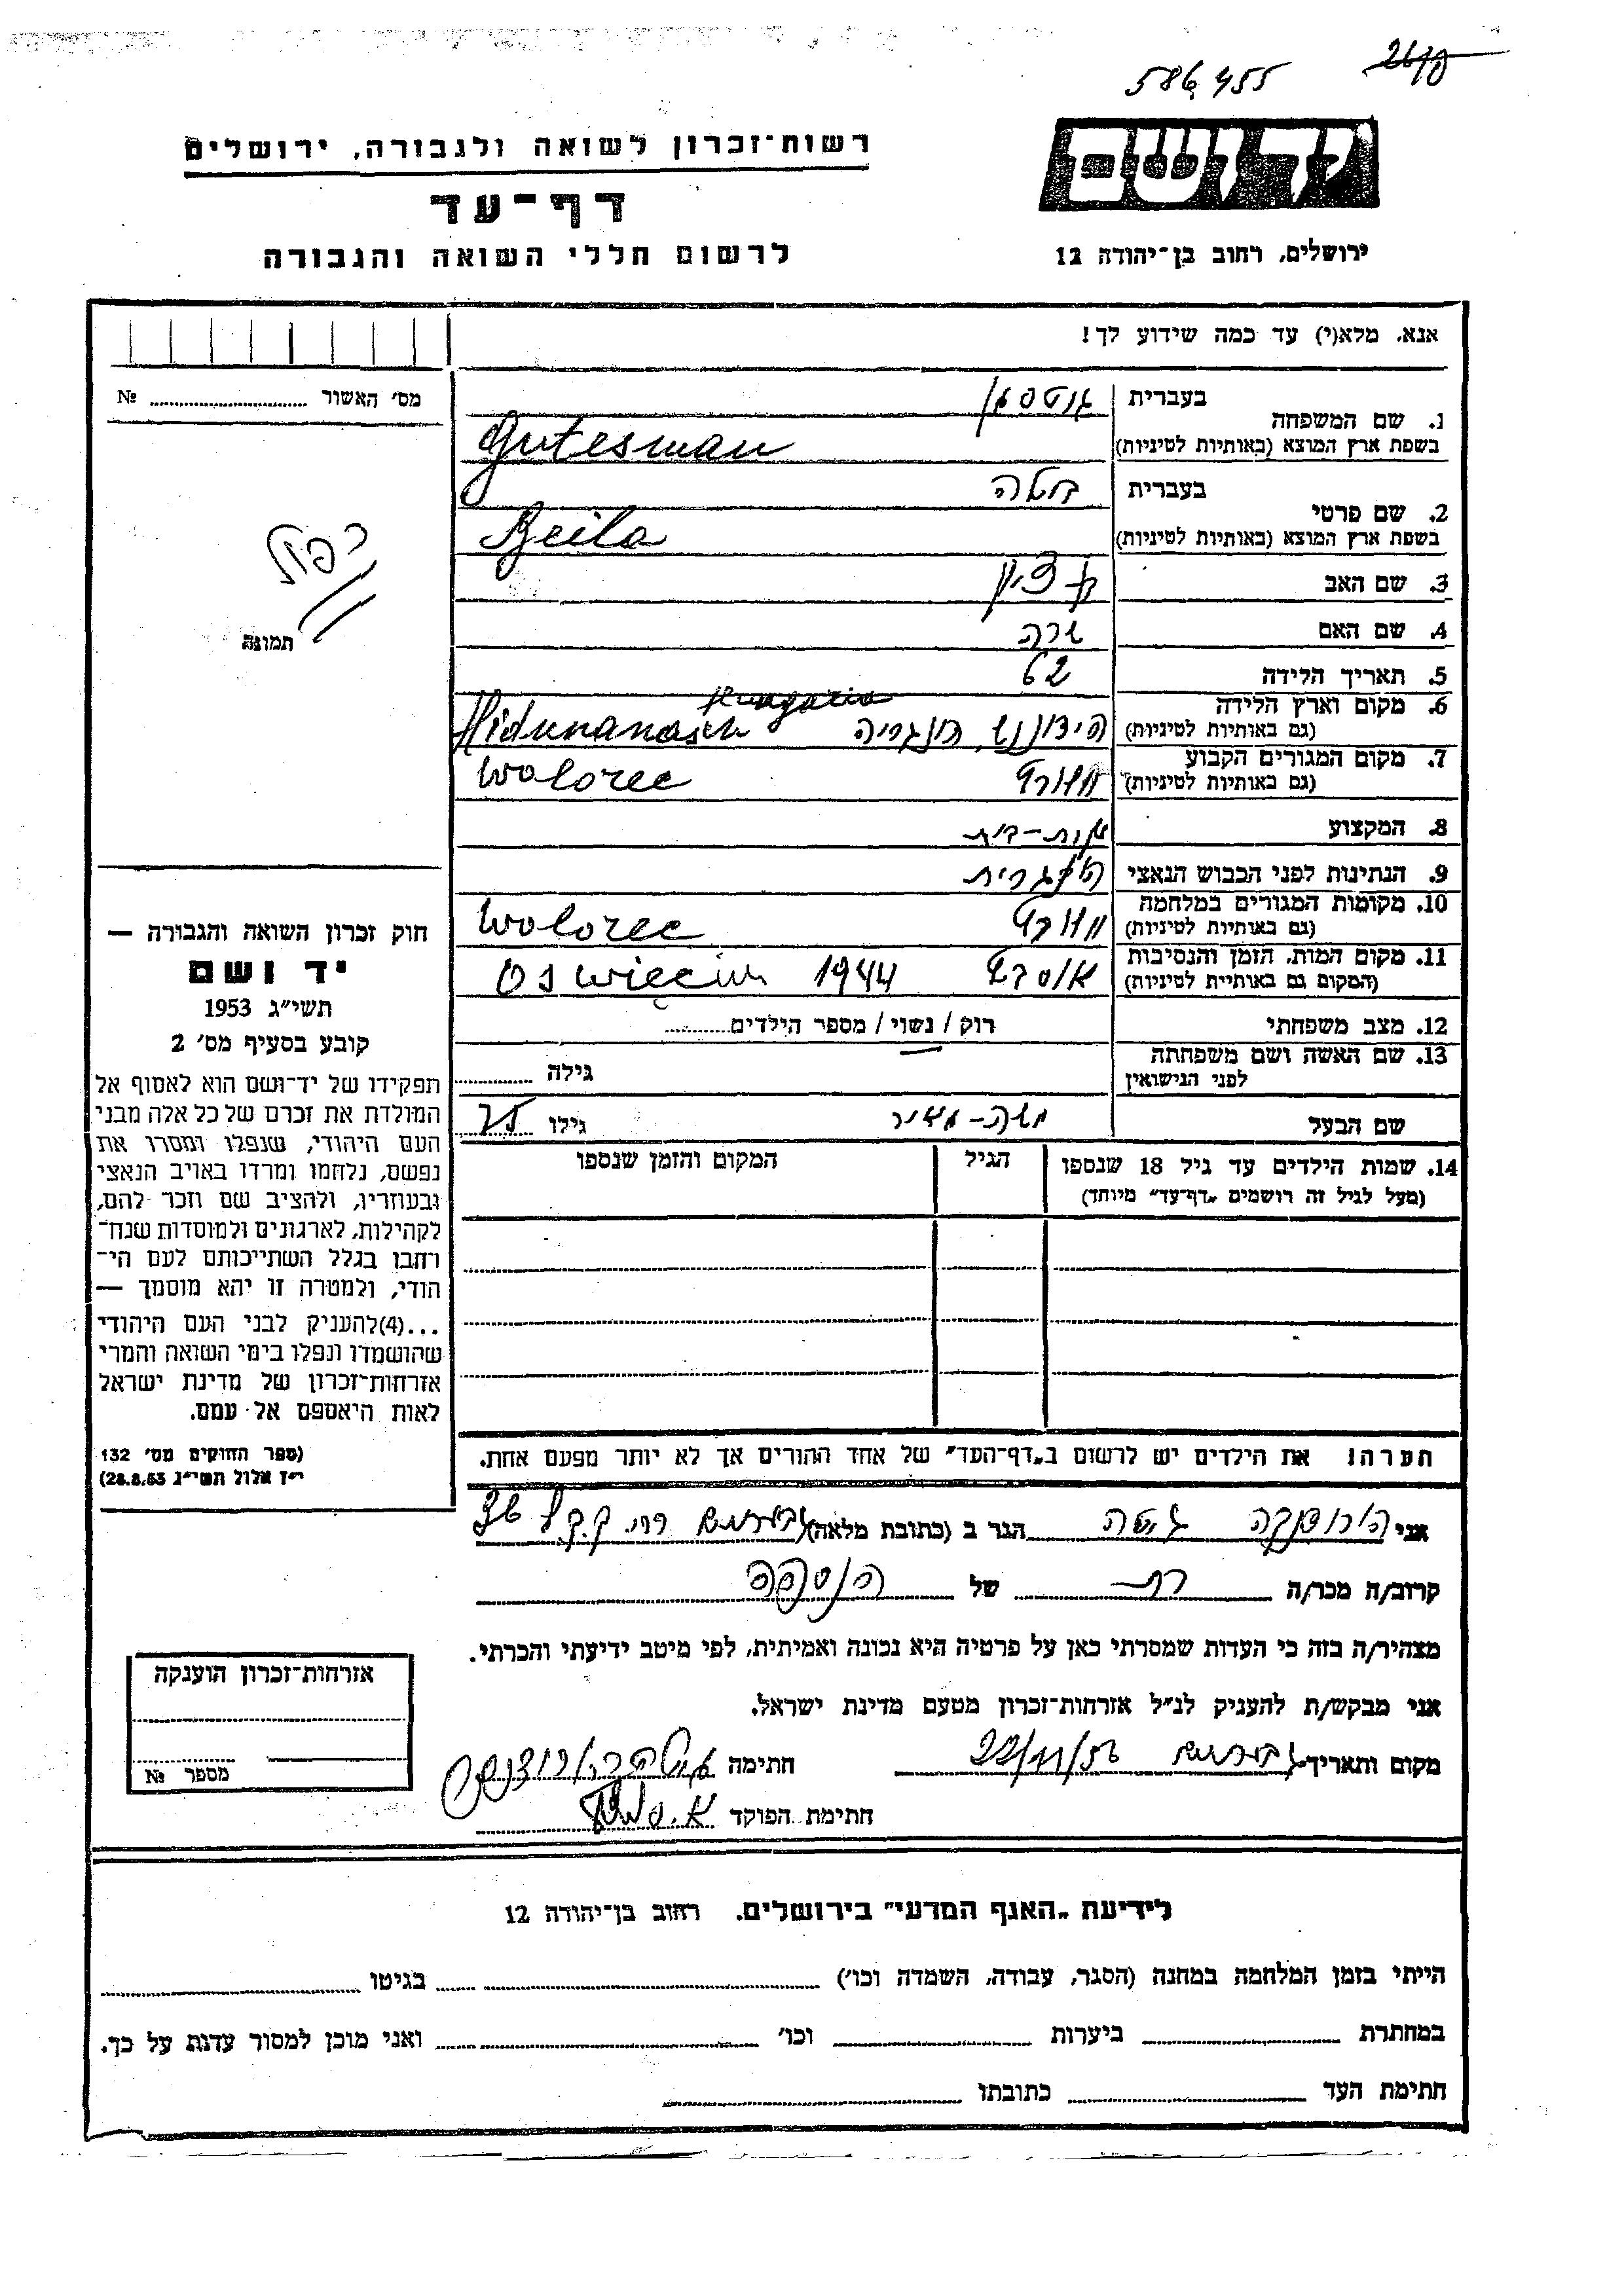 586,455
יד ושם
רשות־זכרון לשואה ולגבורה, ירושלים
דף־עד
לרשום חללי השואה והגבורה
ירושלים, רחוב בן־יהודה 12
אנא, מלא(י) עד כמה שידוע לך!
מס׳ האשור № 
1. שם המשפחה
בעברית גוטסמן
בשפת ארץ המוצא (באותיות לטיניות) Gutesman
2. שם פרטי
בעברית בילה
בשפת ארץ המוצא (באותיות לטיניות) Beila
3. שם האב
4. שם האם שרה
5. תאריך הלידה 62
6. מקום וארץ הלידה
(גם באותיות לטיניות) הונגריה Hidunanasch Hungaria
7. מקום המגורים הקבוע
(גם באותיות לטיניות) Wolorec
8. המקצוע
9. הנתינות לפני הכבוש הנאצי
10. מקומות המגורים במלחמה
(גם באותיות לטיניות) Wolorec
11. מקום המות, הזמן והנסיבות
(המקום גם באותיות לטיניות) 1944 Oswięcim
12. מצב משפחתי רוק / נשוי / מספר הילדים
13. שם האשה ושם משפחתה
לפני הנישואין גילה
שם הבעל משה-מאיר גילו 75
14. שמות הילדים עד גיל 18 שנספו
(מעל לגיל זה רושמים „דף־עד״ מיוחד)
הגיל
המקום והזמן שנספו
תמונה
חוק זכרון השואה והגבורה —
יד ושם
תשי״ג 1953
קובע בסעיף מס׳ 2
תפקידו של יד־ושם הוא לאסוף אל
המולדת את זכרם של כל אלה מבני
העם היהודי, שנפלו ומסרו את
נפשם, נלחמו ומרדו באויב הנאצי
ובעוזריו, ולהציב שם וזכר להם,
לקהילות, לארגונים ולמוסדות שנח־
רבו בגלל השתייכותם לעם הי־
הודי, ולמטרה זו יהא מוסמך —
...(4)להעניק לבני העם היהודי
שהושמדו ונפלו בימי השואה והמרי
אזרחות־זכרון של מדינת ישראל
לאות היאספם אל עמם.
(ספר החוקים מס׳ 132
י״ז אלול תשי״ג 28.8.53)
הערה! את הילדים יש לרשום ב„דף־העד״ של אחד ההורים אך לא יותר מפעם אחת.
אני הגר ב (כתובת מלאה) רח. ק.ק.ל 36
קרוב/ה מכר/ה בת של הנספה
מצהיר/ה בזה כי העדות שמסרתי כאן על פרטיה היא נכונה ואמיתית, לפי מיטב ידיעתי והכרתי.
אני מבקש/ת להעניק לנ״ל אזרחות־זכרון מטעם מדינת ישראל.
מקום ותאריך 22/11/56 חתימה
חתימת הפוקד
אזרחות־זכרון הוענקה
מספר №
לידיעת „האגף המדעי״ בירושלים, רחוב בן־יהודה 12
הייתי בזמן המלחמה במחנה (הסגר, עבודה, השמדה וכו׳) בגיטו
במחתרת ביערות וכו׳ ואני מוכן למסור עדות על כך.
חתימת העד כתובתו